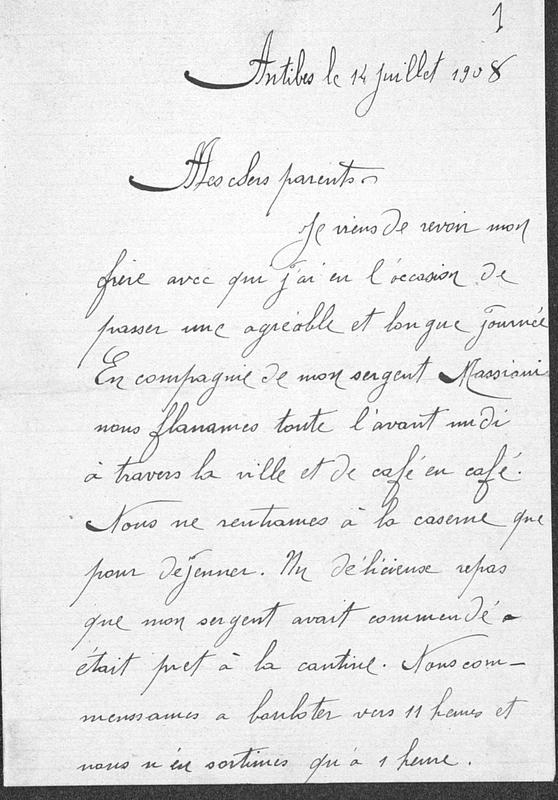 1
Antibes le 14 juillet 1908
Mes chers parents
Je viens de revoir mon
frère avec qui j'ai eu l'occasion de
passer une agréable et longue journée
En compagnie de mon sergent Massiani
nous flanames toute l'avant midi
à travers la ville et de café en café.
Nous ne rentrames à la caserne que
pour déjenner. Un délicieuse repas
que mon sergent avait commendé
était pret à la cantine. Nous com-
menssames a bouloter vers 11 heures et
nous n'én sortimes qu'a 1 heure.